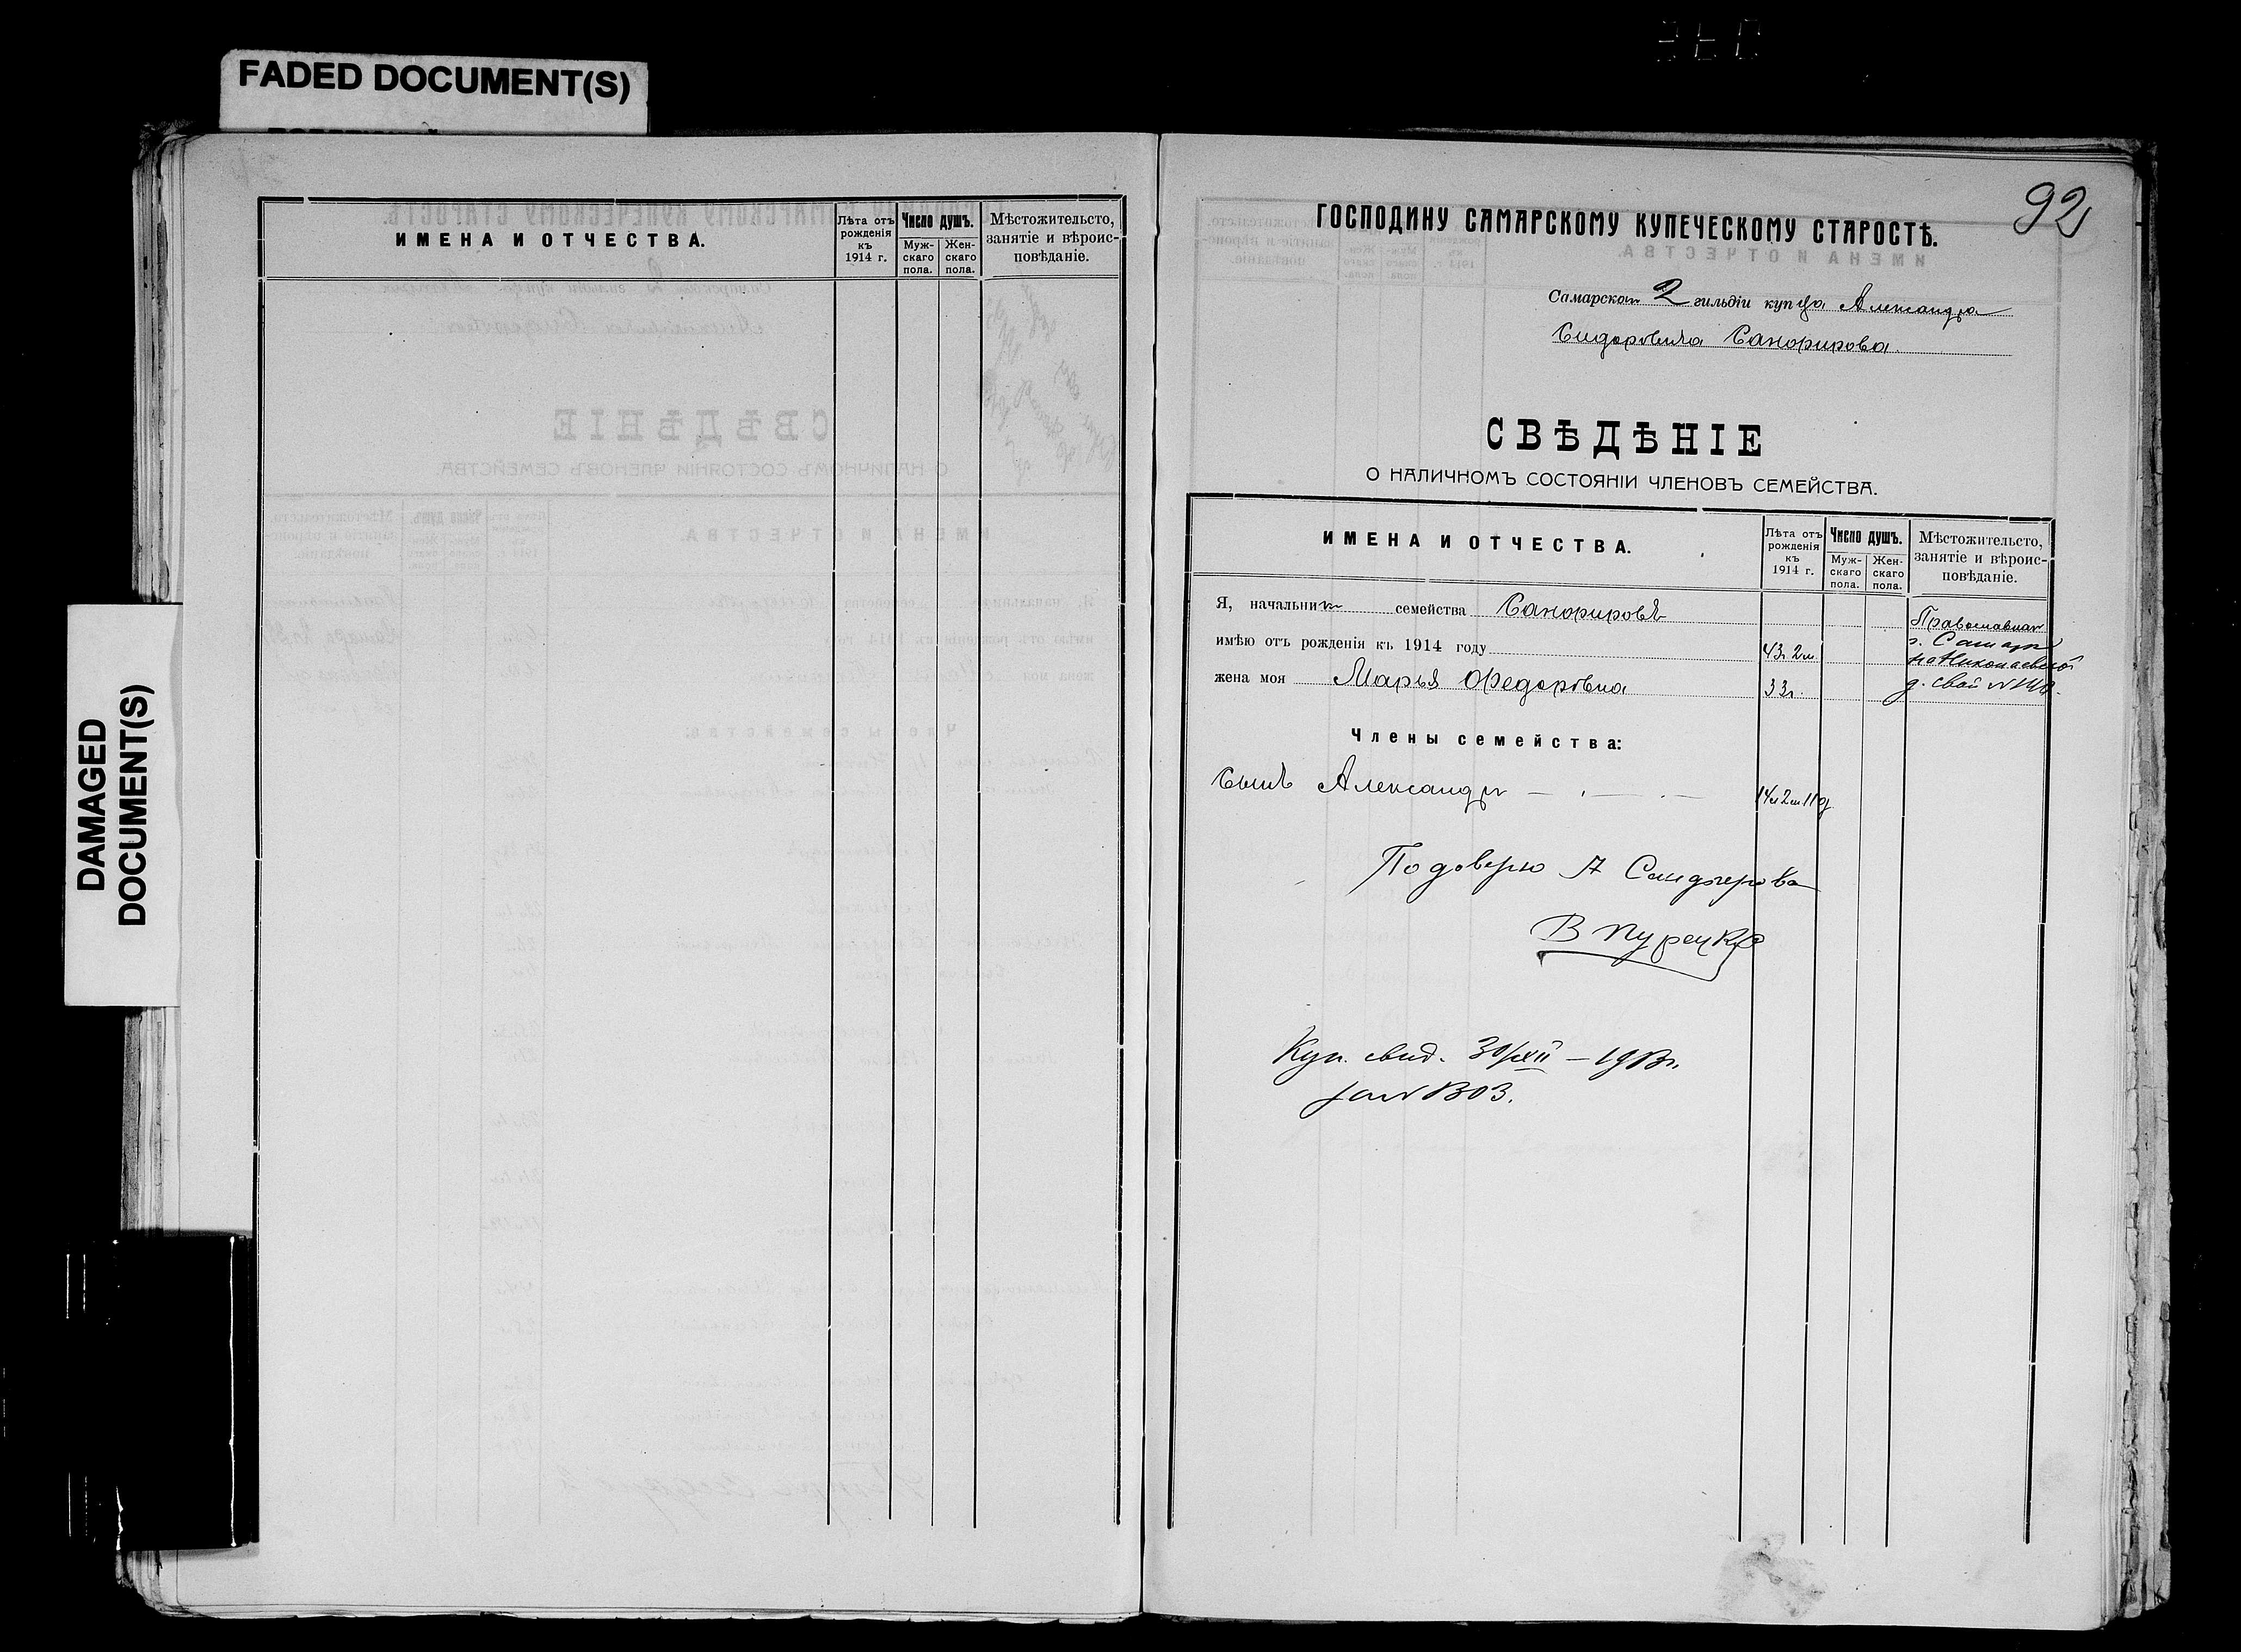 FADED DOCUMENT(S)
DAMAGED
DOCUMENT(S)
ИМЕНА И ОТЧЕСТВА.
Лѣта отъ рожденія къ 1914 г.
Число душъ.
Муж-скаго пола.
Жен-скаго пола.
Мѣстожительсто, занятіе и вѣроис-повѣданіе.
92
ГОСПОДИНУ САМАРСКОМУ КУПЕЧЕСКОМУ СТАРОСТѢ.
Самарскаго 2 гильдіи купца Александра
Сидоровича
СВѢДѢНІЕ
О НАЛИЧНОМЪ СОСТОЯНІИ ЧЛЕНОВЪ СЕМЕЙСТВА.
ИМЕНА И ОТЧЕСТВА.
Лѣта отъ рожденія къ 1914 г.
Число душъ.
Муж-скаго пола.
Жен-скаго пола.
Мѣстожительсто, занятіе и вѣроис-повѣданіе.
Я, начальникъ семейства
Православная
имѣю отъ рожденія къ 1914 году 43г 2м.
г. Самара
на Николаевской
жена моя Марья Федоровна 33г.
д. свой №
Члены семейства:
Сынъ Александръ 14л 2м 11д
По доверію А
В
Куп. свид. 30/XII – 1913г.
за №